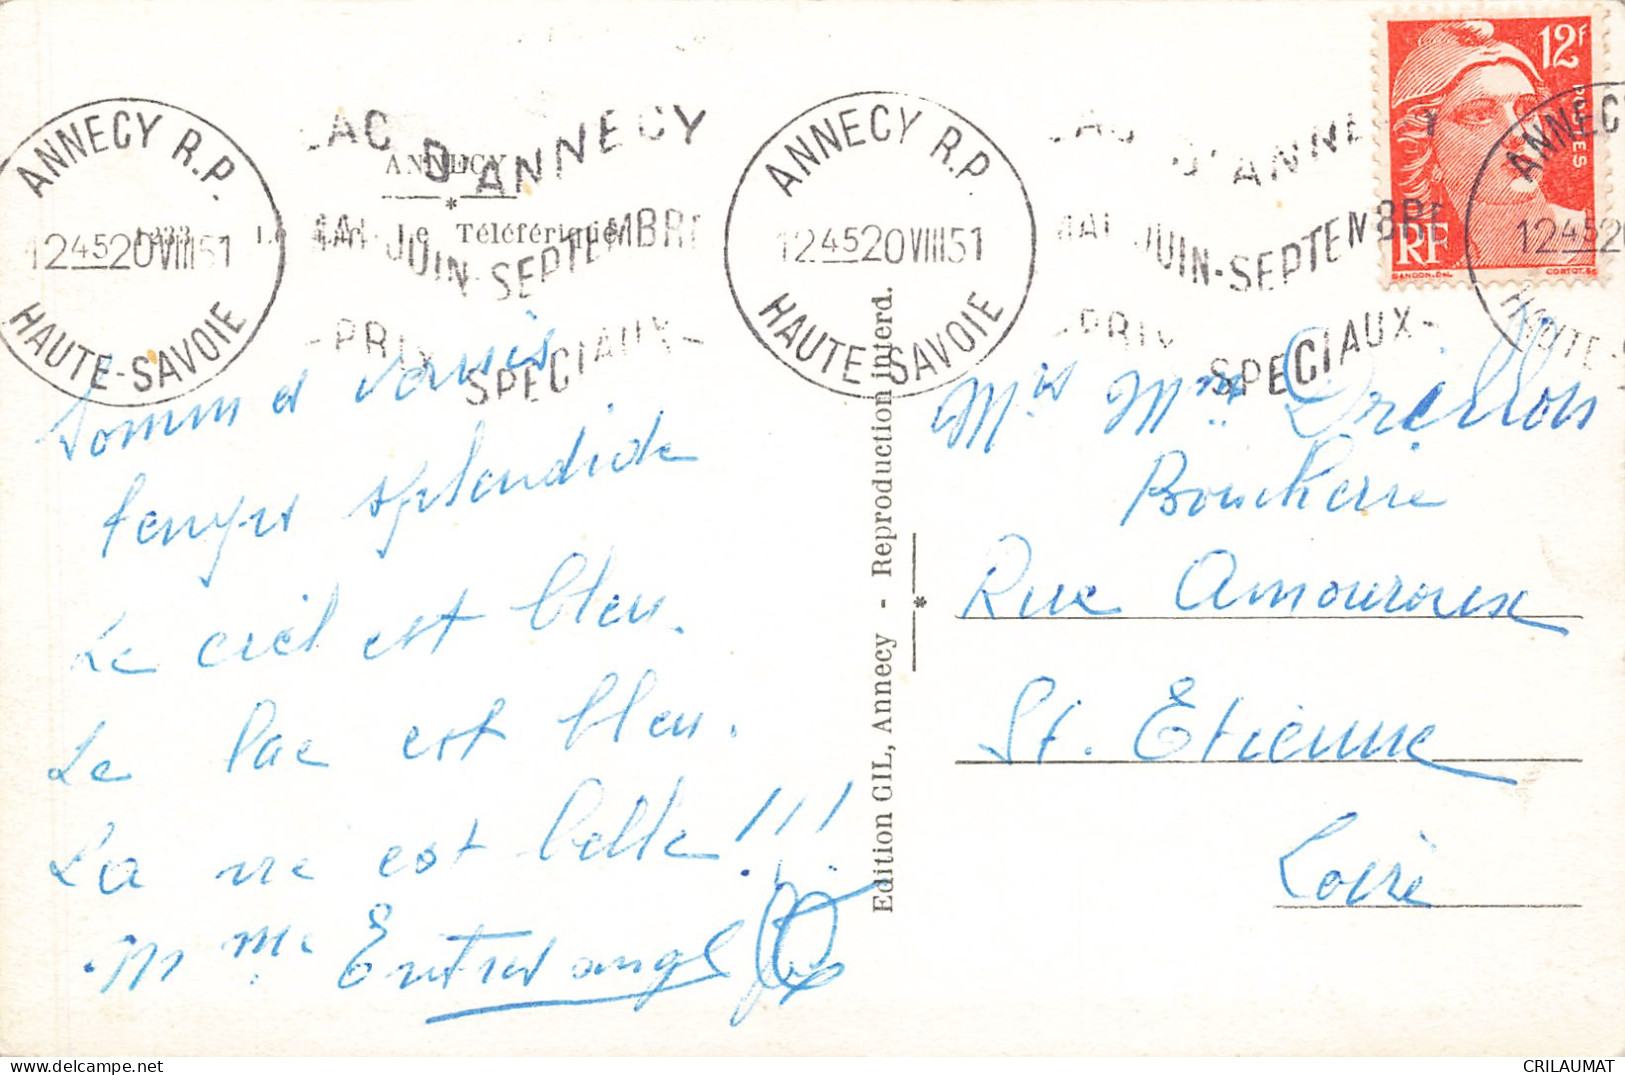 ANNECY R.P.
12 45 20 VIII 51
HAUTE-SAVOIE
LAC D'ANNECY
MAI-JUIN-SEPTEMBRE
-PRIX SPECIAUX-
ANNECY
*
Le Téléférique
ANNECY R.P.
12 45 20 VIII 51
HAUTE-SAVOIE
LAC D'ANNECY
MAI-JUIN-SEPTEMBRE
-PRIX SPECIAUX-
12F
POSTES
RF
GANDON.DEL.
CORTOT.SC
ANNECY
12 45 20
HAUTE-S
Sommes
temps splendide
Le ciel est bleu.
Le lac est bleu.
La vie est belle!!!
M Mme
Edition GIL, Annecy - Reproduction interd.
*
Mr Mme
Boucherie
Rue Amouroux
St. Etienne
Loire
CRILAUMAT